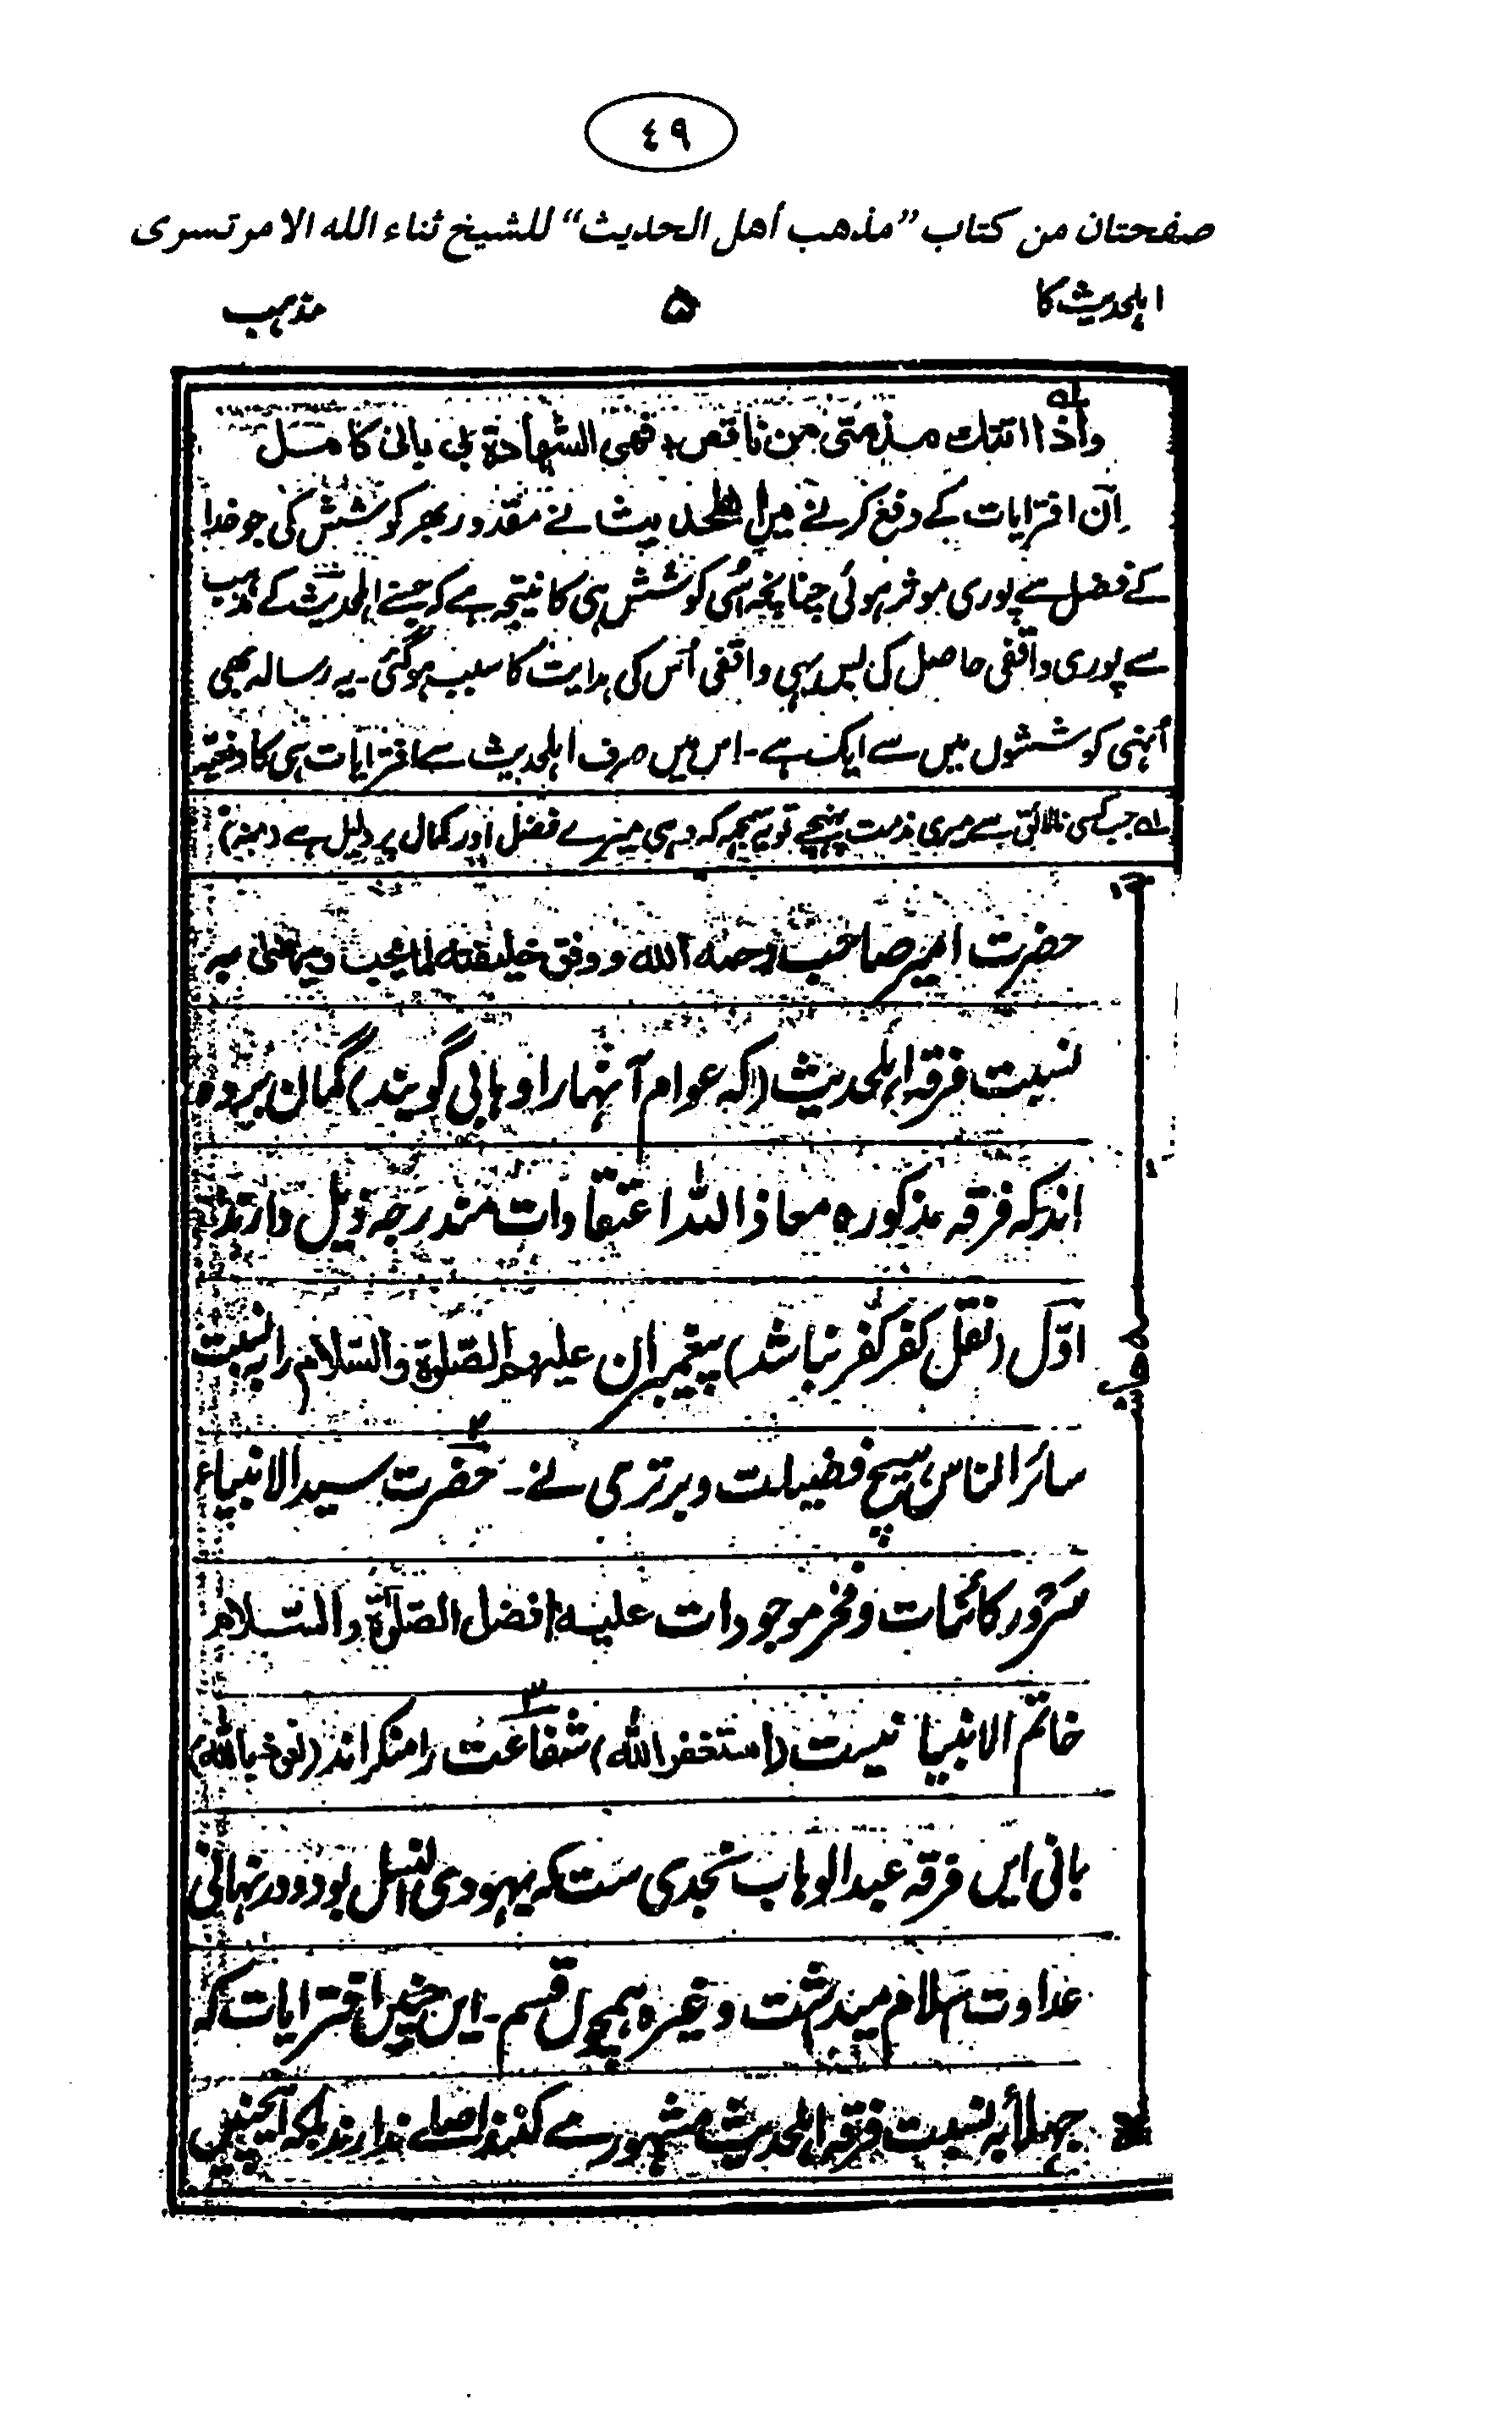 ٤٩
صفحتان من كتاب ”مذهب أهل الحديث“ للشيخ ثناء الله الامرتسرى
اہلحدیث کا
۵
مذہب
واذا اتتك مذمتى من ناقص، فهى الشهادة لى بانى كامل
اِن افترایات کے دفع کرنے میں اہلحدیث نے مقدور بھر کوشش کی جو خدا
کے فضل سے پوری موثر ہوئی چنانچہ اُسی کوشش ہی کا نتیجہ ہے کہ جسنے اہلحدیث کے مذہب
سے پوری واقفی حاصل کی بس یہی واقفی اُس کی ہدایت کا سبب ہوگئی۔ یہ رسالہ بھی
اُنہی کوششوں میں سے ایک ہے۔ اس میں صرف اہلحدیث سے افترایات ہی کا دفعیہ
لہ جب کسی نالائق سے میری مذمت پہنچے تو یہ سمجھ کہ وہ ہی میرے فضل اور کمال پر دلیل ہے (منہ)
حضرت امیر صاحب رحمه الله ووفق خليفته لما يحب ويرضى بر
نسبت فرقہ اہلحدیث (کہ عوام آنہارا وہابی گویند) گمان بردہ
اند کہ فرقہ مذکورہ معاذ اللہ اعتقادات مندرجہ ذیل دارند
اوّل (نقل کفر کفر نباشد) پیغمبران علیہم الصّلوة والسّلام را بہ نسبت
سائر الناس ہیچ فضیلت و برتری نے۔ ۲ حضرت سید الانبیاء
سرور کائنات و فخر موجودات علیہ افضل الصّلوٰة والسّلام
خاتم الانبیا نیست (استغفر الله) ۳ شفاعت را منکر اند (نعوذ بالله)
بانی ایں فرقہ عبد الوہاب نجدی ست کہ یہودی النسل بود و در نہانی
عداوت اسلام میدشت وغیرہ ہمچوں قسم۔ ایں چنیں افترایات کہ
جہلا بہ نسبت فرقہ اہلحدیث مشہور مے کنند اصلے ندارند بلکہ ایچنیں